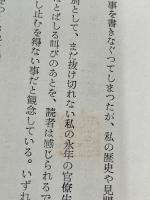 事を書きなぐつてしまつたが、私の歴史や見聞
別として、まだ抜け切れない私の永年の官僚生
とばしる叫びのあとを、読者は感じられるで
し止むを得ない事だと観念している。いずれ